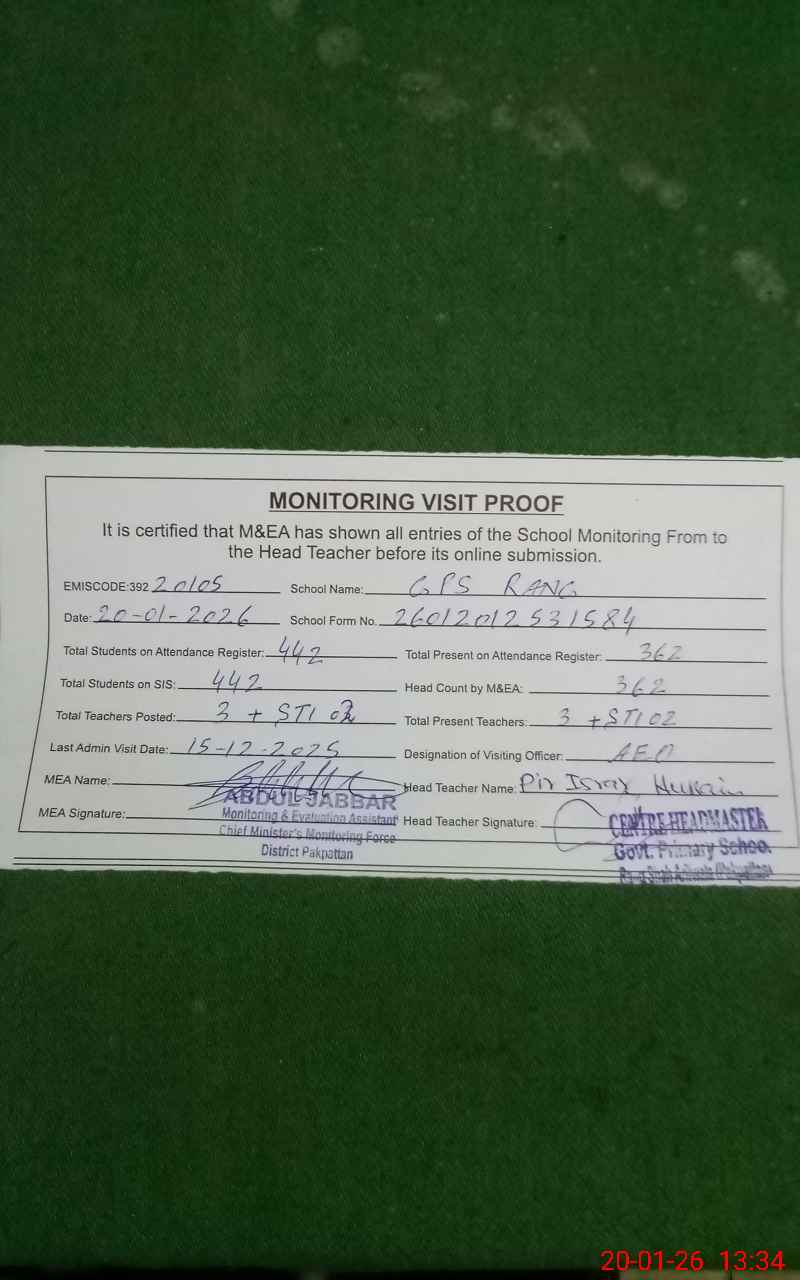 MONITORING VISIT PROOF
It is certified that M&EA has shown all entries of the School Monitoring From to
the Head Teacher before its online submission.
EMISCODE:392 20105 School Name: GPS RANG
Date: 20-01-2026 School Form No. 26012012531584
Total Students on Attendance Register: 442 Total Present on Attendance Register: 362
Total Students on SIS: 442 Head Count by M&EA: 362
Total Teachers Posted: 3 + STI 02 Total Present Teachers: 3 + STI 02
Last Admin Visit Date: 15-12-2025 Designation of Visiting Officer: AEO
MEA Name: Head Teacher Name: Pir Israr Hussain
ABDUL JABBAR
MEA Signature: Monitoring & Evaluation Assistant Head Teacher Signature: CENTRE HEADMASTER
Chief Minister's Monitoring Force
District Pakpattan Govt. Primary School
20-01-26 13:34